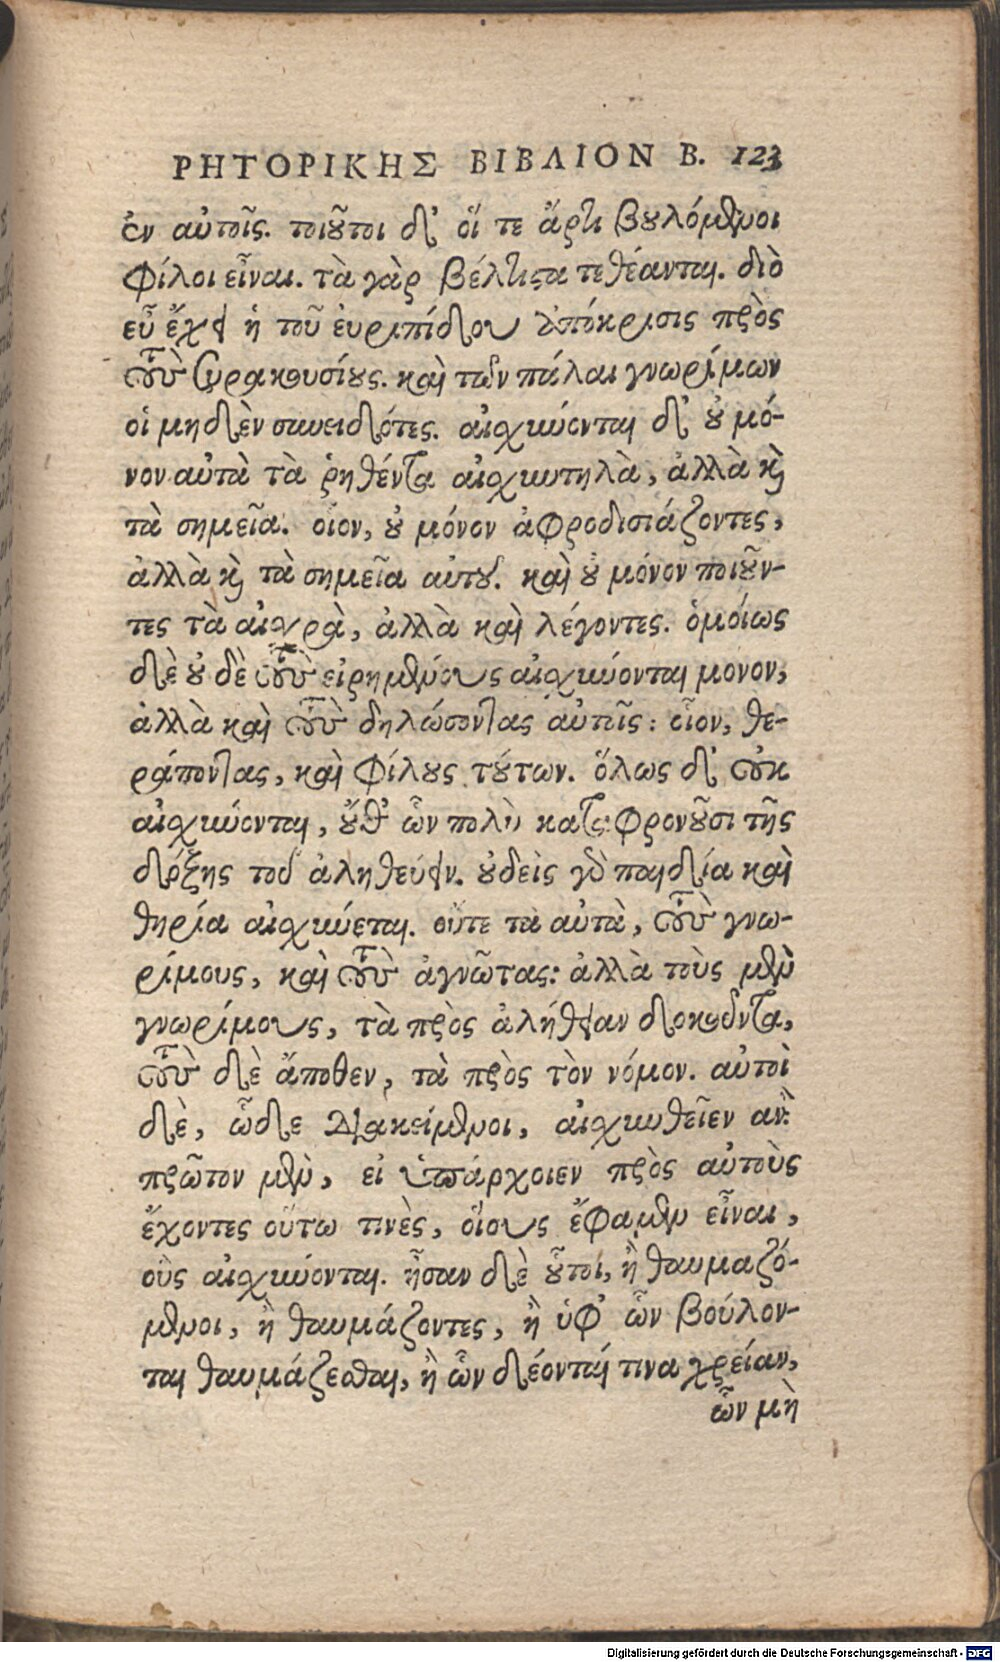 ΡΗΤΟΡΙΚΗΣ ΒΙΒΛΙΟΝ Β. 123
ἐν αὐτοῖς. τοιοῦτοι δ' οἵ τε ἄρτι βουλόμενοι
φίλοι εἶναι. τὰ γὰρ βέλτιστα τεθέανται. διὸ
εὖ ἔχει ἡ τοῦ ἐυριπίδου ἀπόκρισις πρὸς
τοὺς Συρακουσίους. καὶ τῶν πάλαι γνωρίμων
οἱ μηδὲν συνειδότες. αἰσχύνονται δ' οὐ μό-
νον αὐτὰ τὰ ῥηθέντα αἰσχυντηλὰ, ἀλλὰ καὶ
τὰ σημεῖα. οἷον, οὐ μόνον ἀφροδισιάζοντες,
ἀλλὰ καὶ τὰ σημεῖα αὐτοῦ. καὶ οὐ μόνον ποιοῦν-
τες τὰ αἰσχρὰ, ἀλλὰ καὶ λέγοντες. ὁμοίως
δὲ οὐδὲ τοὺς εἰρημένους αἰσχύνονται μόνον,
ἀλλὰ καὶ τοὺς δηλώσοντας αὐτοῖς: οἷον, θε-
ράποντας, καὶ φίλους τούτων. ὅλως δ' οὐκ
αἰσχύνονται, οὔθ' ὧν πολὺ καταφρονοῦσι τῆς
δόξης τοῦ ἀληθεύειν. οὐδεὶς γὰρ παιδία καὶ
θηρία αἰσχύνεται. οὔτε τὰ αὐτὰ, τοὺς γνω-
ρίμους, καὶ τοὺς ἀγνῶτας: ἀλλὰ τοὺς μὲν
γνωρίμους, τὰ πρὸς ἀλήθειαν δοκοῦντα,
τοὺς δὲ ἄποθεν, τὰ πρὸς τὸν νόμον. αὐτοὶ
δὲ, ὧδε διακείμενοι, αἰσχυνθεῖεν ἄν:
πρῶτον μὲν, εἰ ὑπάρχοιεν πρὸς αὐτοὺς
ἔχοντες οὕτω τινὲς, οἵους ἔφαμεν εἶναι,
οὓς αἰσχύνονται. ἦσαν δὲ οὗτοι, ἢ θαυμαζό-
μενοι, ἢ θαυμάζοντες, ἢ ὑφ' ὧν βούλον-
ται θαυμάζεσθαι, ἢ ὧν δέονταί τινα χρείαν,
ὧν μὴ
Digitalisierung gefördert durch die Deutsche Forschungsgemeinschaft - DFG